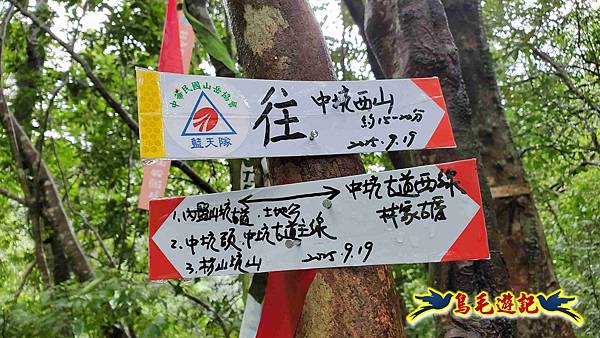 中華民國山岳協會
藍天隊
往 中坑西山
約15-20分
2025.9.19
中坑古道西線
林家古厝
1.內盤山坑古道.土地公
2.中坑頭.中坑古道主線
3.枋山坑山 2025.9.19
鳥毛遊記